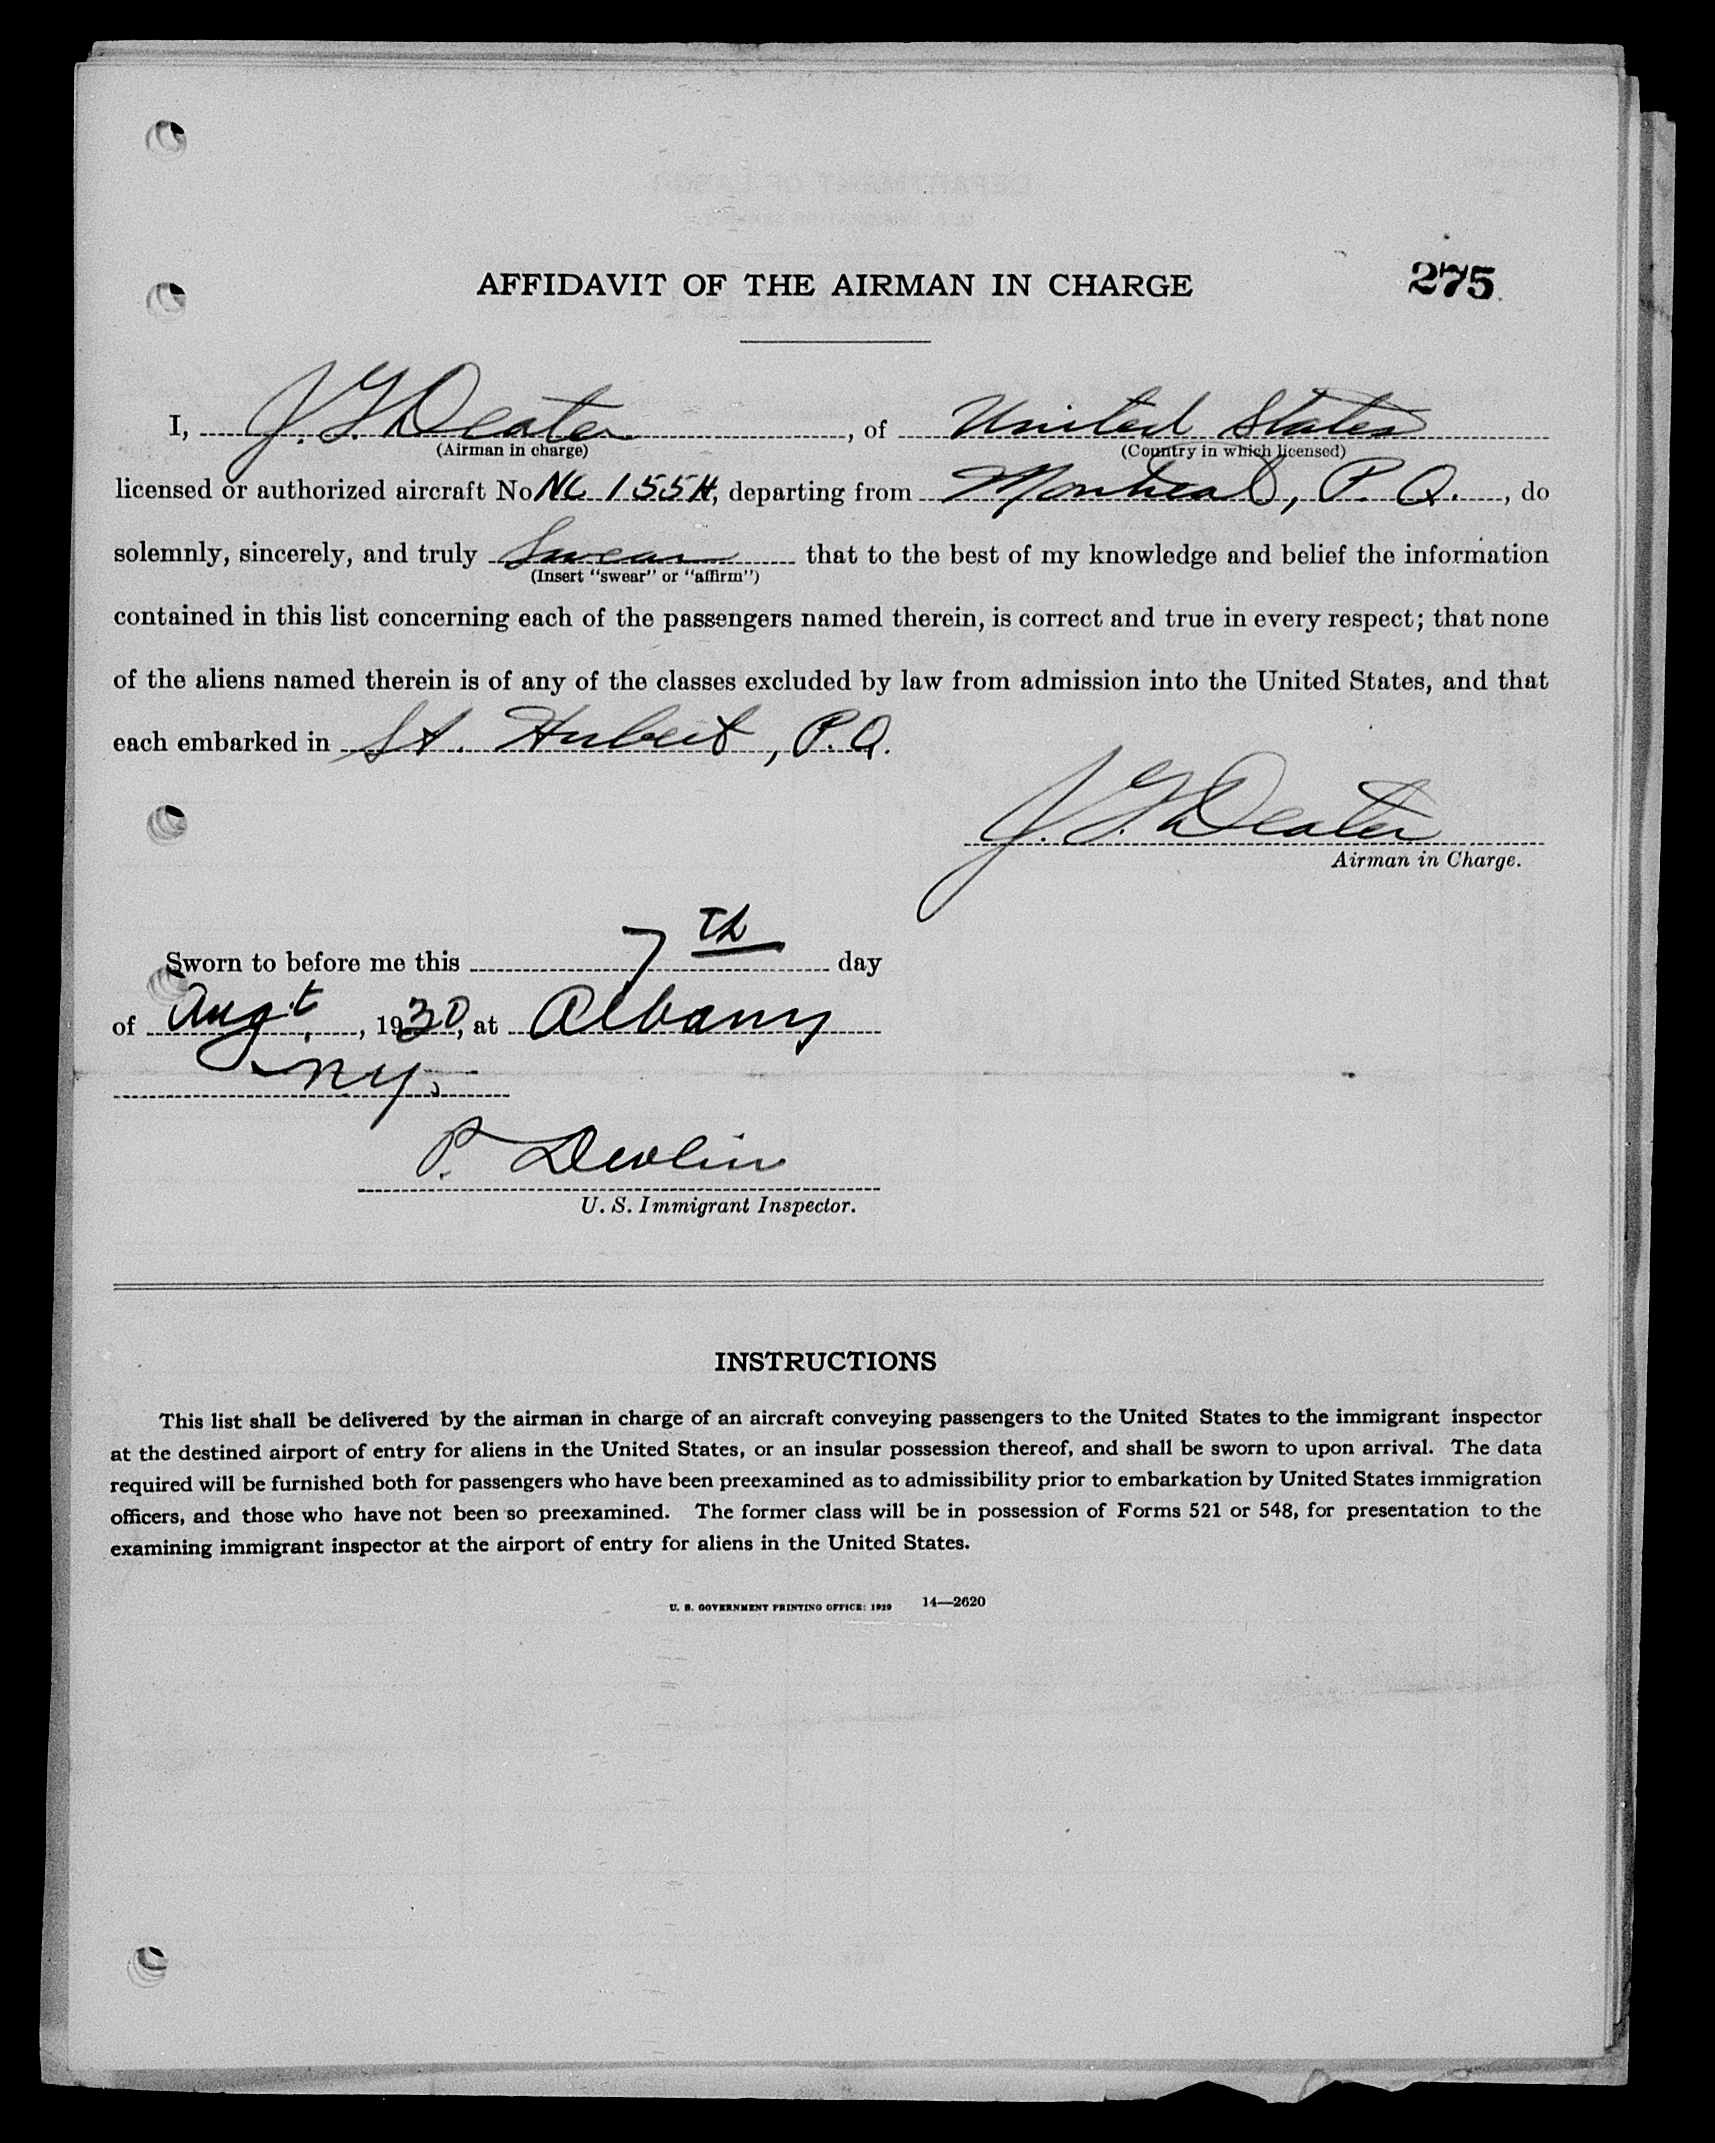 AFFIDAVIT OF THE AIRMAN IN CHARGE
275
I, J. G. Deater, of United States
(Airman in charge) (Country in which licensed)
licensed or authorized aircraft No NC 155H, departing from Montreal, P. Q., do
solemnly, sincerely, and truly Swear that to the best of my knowledge and belief the information
(Insert "swear" or "affirm")
contained in this list concerning each of the passengers named therein, is correct and true in every respect; that none
of the aliens named therein is of any of the classes excluded by law from admission into the United States, and that
each embarked in St. Hubert, P.Q.
J. G. Deater
Airman in Charge.
Sworn to before me this 7th day
of Augt, 1930, at Albany
N.Y.
P. Devlin
U. S. Immigrant Inspector.
INSTRUCTIONS
This list shall be delivered by the airman in charge of an aircraft conveying passengers to the United States to the immigrant inspector
at the destined airport of entry for aliens in the United States, or an insular possession thereof, and shall be sworn to upon arrival. The data
required will be furnished both for passengers who have been preexamined as to admissibility prior to embarkation by United States immigration
officers, and those who have not been so preexamined. The former class will be in possession of Forms 521 or 548, for presentation to the
examining immigrant inspector at the airport of entry for aliens in the United States.
U. S. GOVERNMENT PRINTING OFFICE: 1929 14—2620